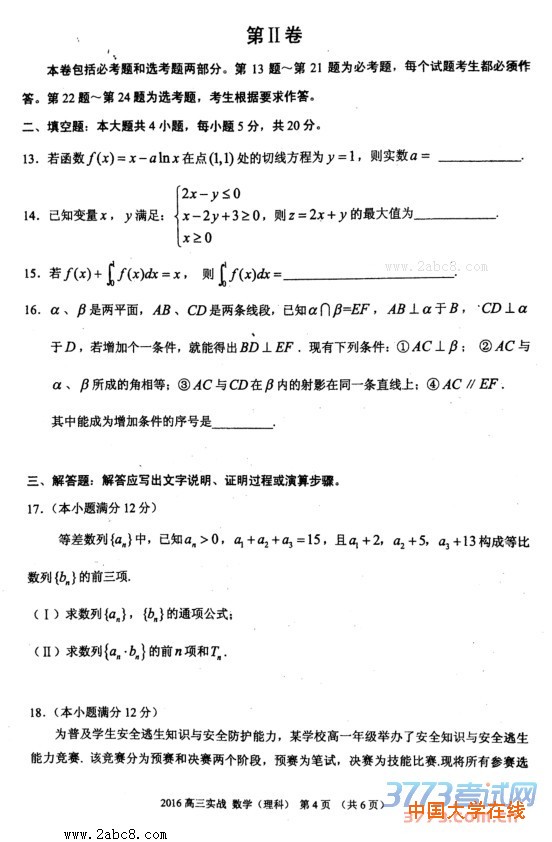 第Ⅱ卷
本卷包括必考题和选考题两部分。第 13 题～第 21 题为必考题，每个试题考生都必须作
答。第 22 题～第 24 题为选考题，考生根据要求作答。
二、填空题：本大题共 4 小题，每小题 5 分，共 20 分。
13．若函数 f(x) = x − a ln x 在点 (1,1) 处的切线方程为 y = 1，则实数 a = ________.
14．已知变量 x，y 满足：{2x − y ≤ 0
x − 2y + 3 ≥ 0，则 z = 2x + y 的最大值为________.
x ≥ 0
www.2abc8.com
15．若 f(x) + ∫₀¹ f(x)dx = x， 则 ∫₀¹ f(x)dx = ________.
16．α、β 是两平面，AB、CD 是两条线段，已知 α∩β=EF，AB⊥α 于 B，CD⊥α
于 D，若增加个一条件，就能得出 BD⊥EF．现有下列条件：①AC⊥β； ②AC 与
α、β 所成的角相等；③AC 与 CD 在 β 内的射影在同一条直线上；④AC∥EF．
其中能成为增加条件的序号是________.
三、解答题：解答应写出文字说明、证明过程或演算步骤。
17．（本小题满分 12 分）
等差数列{aₙ}中，已知 aₙ > 0，a₁ + a₂ + a₃ = 15，且 a₁ + 2，a₂ + 5，a₃ + 13 构成等比
数列{bₙ}的前三项.
（Ⅰ）求数列{aₙ}，{bₙ}的通项公式；
（Ⅱ）求数列{aₙ·bₙ}的前 n 项和 Tₙ．
18．（本小题满分 12 分）
为普及学生安全逃生知识与安全防护能力，某学校高一年级举办了安全知识与安全逃生
能力竞赛．该竞赛分为预赛和决赛两个阶段，预赛为笔试，决赛为技能比赛.现将所有参赛选
2016 高三实战 数学（理科） 第 4 页 （共 6 页）
3773考试网
中国大学在线
3773.com.cn
www.2abc8.com